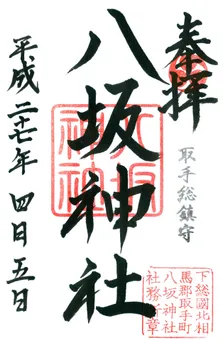 奉拝
取手総鎮守
下総國北相
馬郡取手町
八坂神社
社務所章
八坂神社
八坂
神社
平成二十七年 四月五日